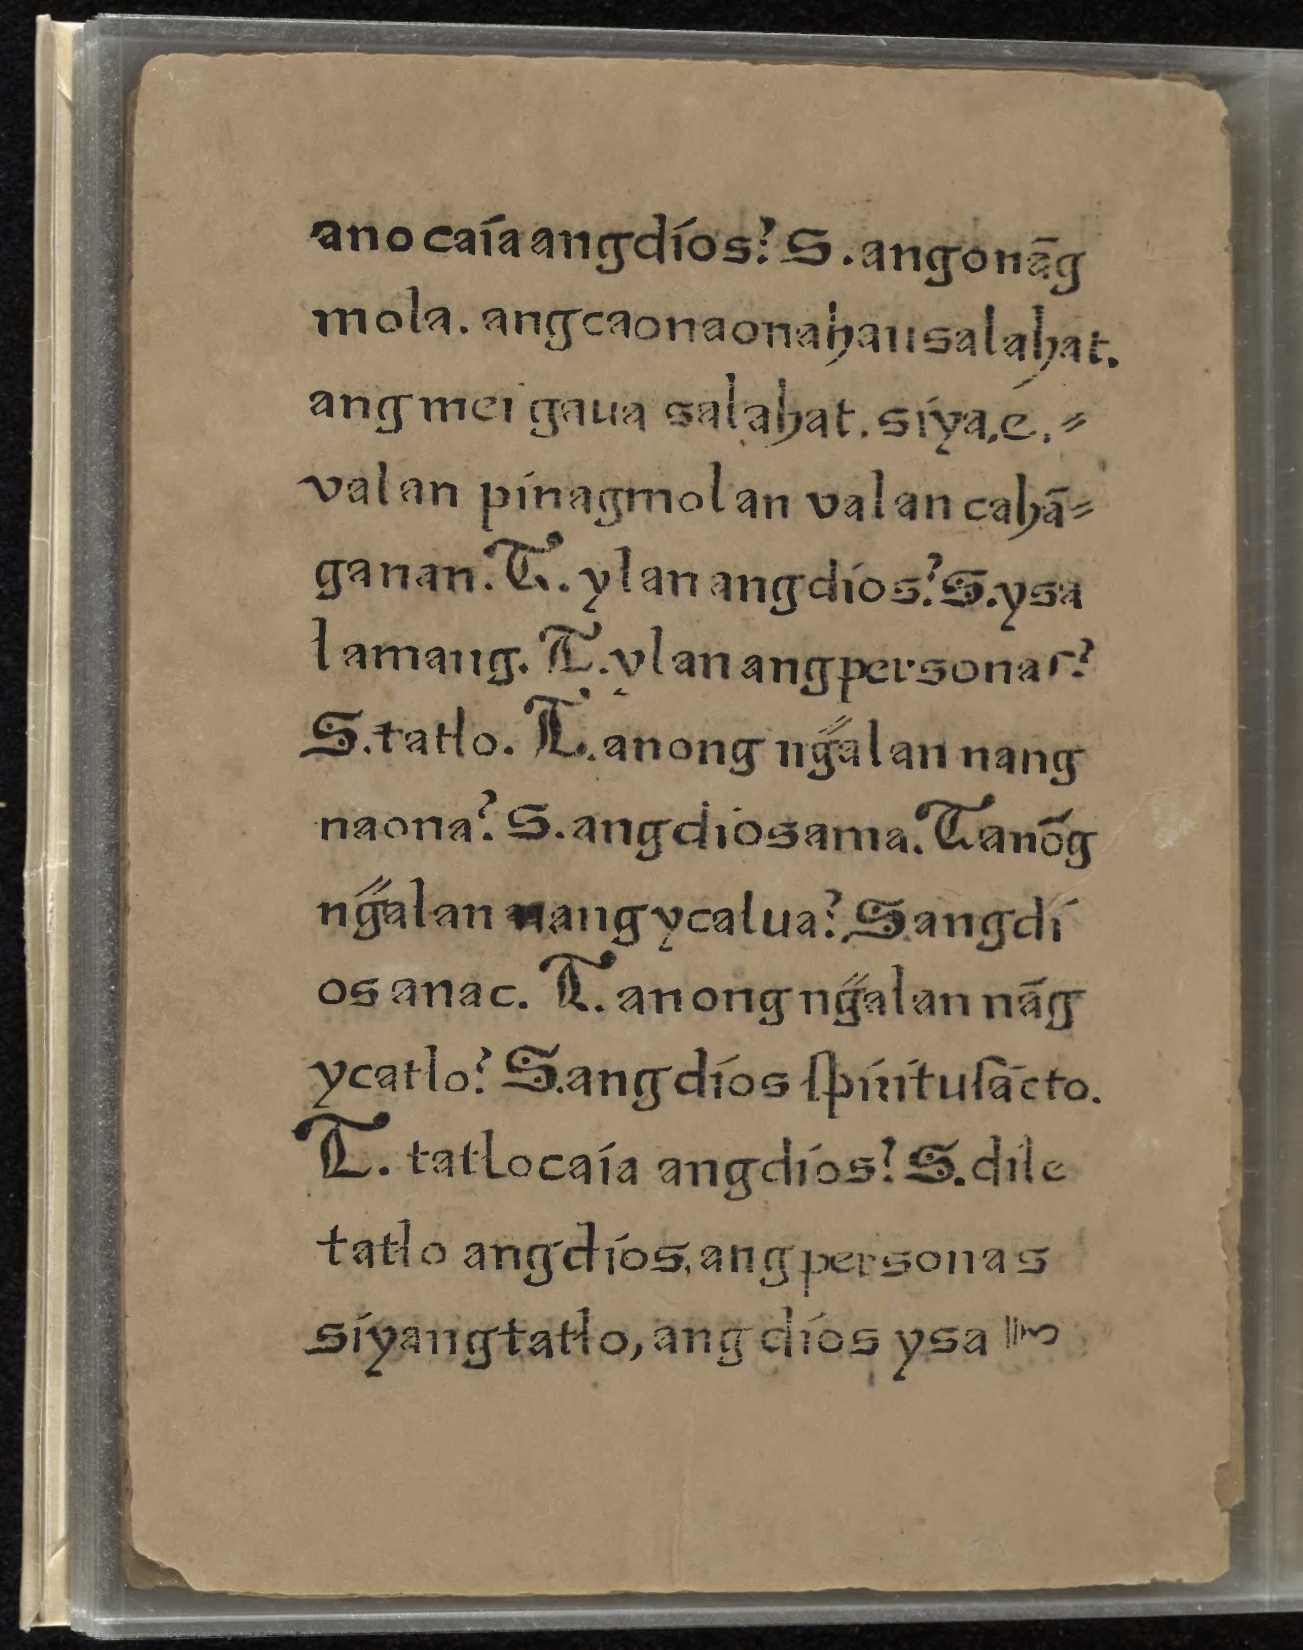 ano caía ang díos? S. ang onāg
mola. ang caonaonahan salahat.
ang mei gaua salahat. síya,é.⸗
valan pínagmolan valan cahā⸗
ganan. T. ylan ang díos? S. ysa
lamang. T. ylan ang personas?
S. tatlo. T. anong ng̃alan nang
naona? S. ang dios ama. T anōg
ng̃alan nang ycalua? S ang dí
os anac. T. anong ng̃alan nāg
ycatlo? S. ang díos ſpíritu ſācto.
T. tatlo caía ang díos? S. díle
tatlo ang díos, ang personas
síyang tatlo, ang díos ysa